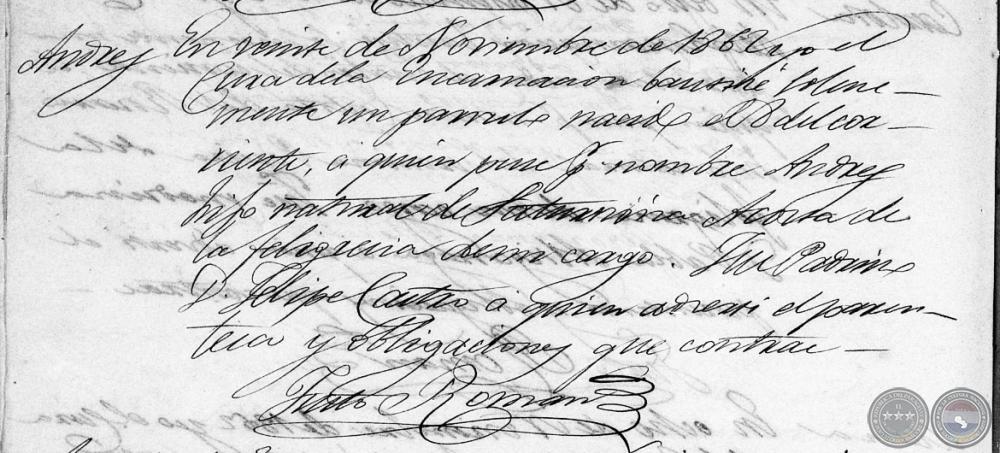 Andres En veinte de Noviembre de 1862 yo el
Cura dela Encarnacion bautisé solene-
mente un parvulo nacido el 8 del cor-
riente, a quien puse por nombre Andres
hijo natural de Saturnina Acosta de
la feligrecia demi cargo. Fue Padrino
D. Felipe Castro a quien adverti el paren-
tesco y obligaciones que contrae-
Justo Roman